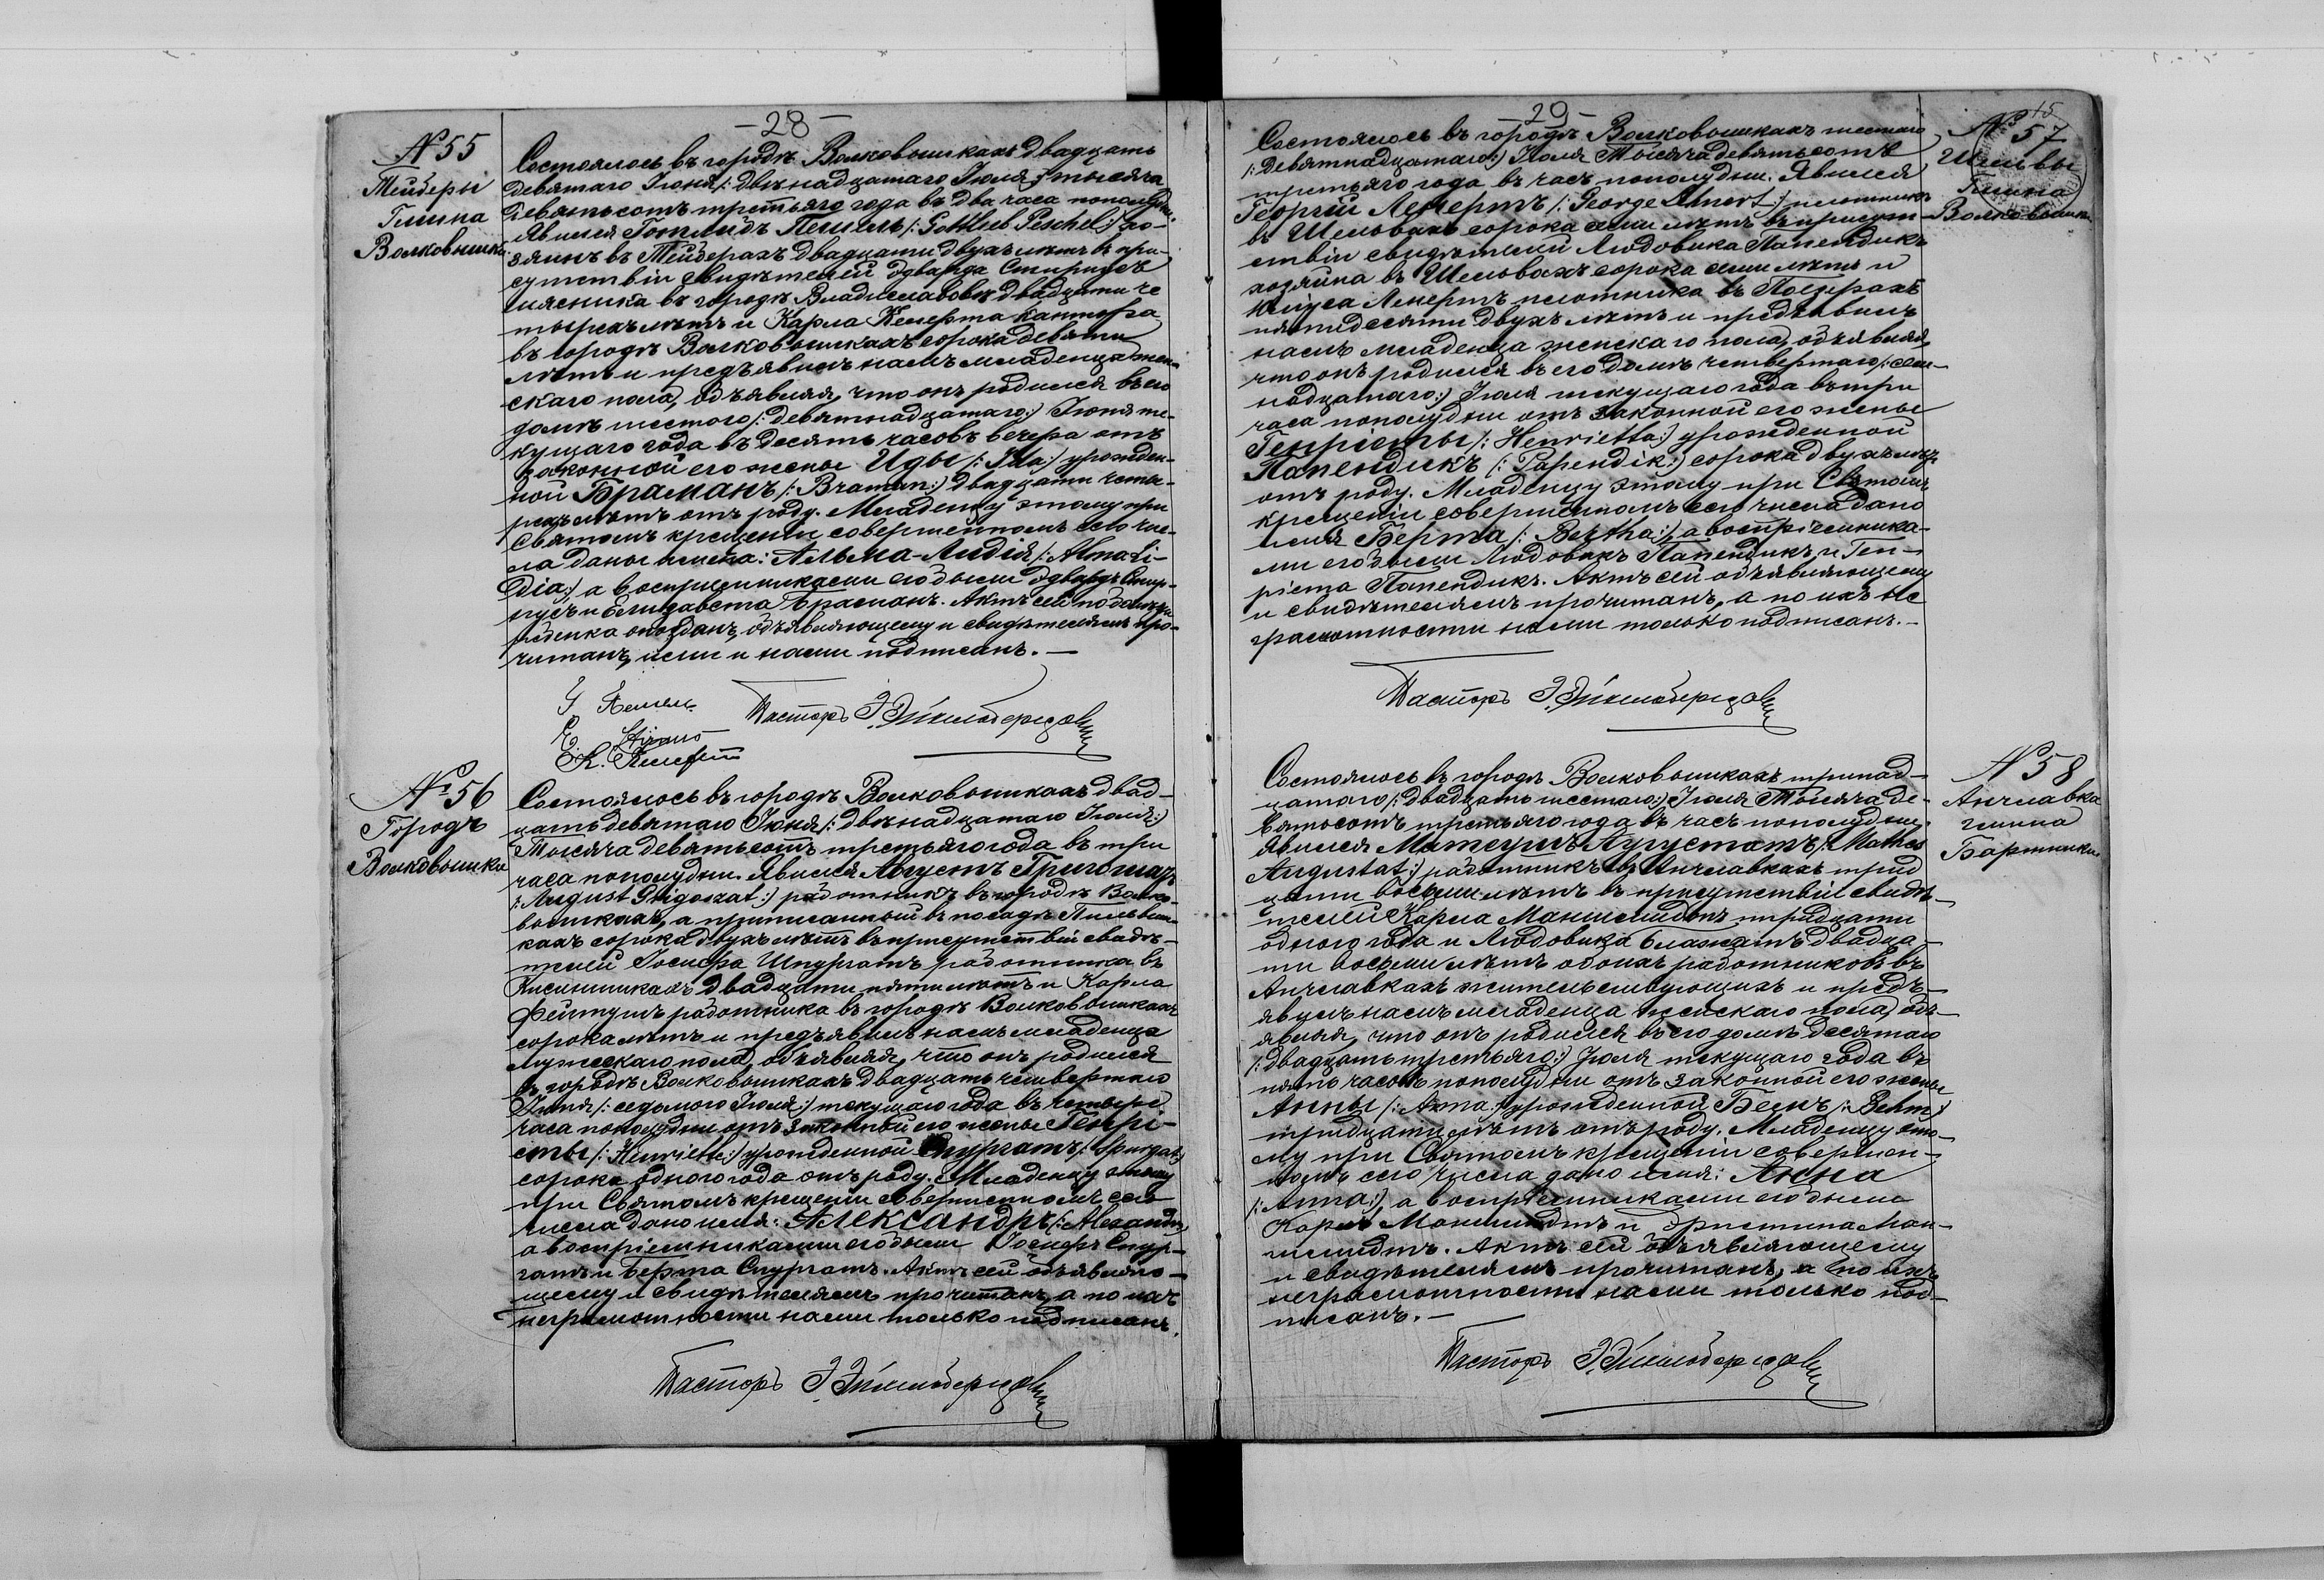 -28-
№ 55
Тейберы
Гмина
Волковышки
Состоялось въ городѣ Волковышкахъ двадцать
девятаго Іюня /: двѣнадцатаго Іюля :/ тысяча
девятьсотъ третьяго года въ два часа пополудни.
Явился Готлибъ Пешель /: Gottlieb Peschel :/ хо-
зяинъ въ Тейберахъ двадцати двухъ лѣтъ въ при-
сутствіи свидѣтелей Эдварда
мясника въ городѣ Владиславовѣ двадцати че
тырехъ лѣтъ и Карла кантора
въ городѣ Волковышкахъ сорока девяти
лѣтъ и предъявилъ намъ младенца жен-
скаго пола, объявляя, что онъ родился въ его
домѣ шестого /: девятнадцатаго :/ Іюня те-
кущаго года въ десять часовъ вечера отъ
законной его жены Иды /: Ida :/ урожден-
ной Браманъ /: Braman :/ двадцати четы-
рехъ лѣтъ отъ роду. Младенцу этому при
Святомъ крещеніи совершенномъ сего чис-
ла даны имена: Альма-Лидія /: Alma Li-
dia :/ а воспріемниками его были Эдвардъ
и Елизавета Браманъ. Актъ сей по болѣзни
ребенка опозданъ, объявляющему и свидѣтелямъ про-
читанъ, ими и нами подписанъ. —
Пасторъ
№ 56
Городъ
Волковышки
Состоялось въ городѣ Волковышкахъ двад-
цать девятаго Іюня /: двѣнадцатаго Іюля :/
Тысяча девятьсотъ третьяго года въ три
часа пополудни. Явился Августъ Григошатъ
/: August Grigoszat :/ работникъ въ городѣ Волко-
вышкахъ, а приписанный въ посадѣ Пильвиш-
кахъ сорока двухъ лѣтъ въ присутствіи свидѣ-
телей Іосифа Шпургатъ работника въ
двадцати пяти лѣтъ и Карла
работника въ городѣ Волковышкахъ
сорока лѣтъ и предъявилъ намъ младенца
мужескаго пола, объявляя, что онъ родился
въ городѣ Волковышкахъ двадцать четвертаго
Іюня /: седьмого Іюля :/ текущаго года въ четыре
часа пополудни отъ законной его жены Генрі-
еты /: Henriette :/ урожденной Спургатъ /: Spurgat :/
сорока одного года отъ роду. Младенцу этому
при Святомъ крещеніи совершенномъ сего
числа дано имя: Александръ /: Alexander :/
а воспріемниками его были Іосифъ Спур-
гатъ и Берта Спургатъ. Актъ сей объявляю-
щему и свидѣтелямъ прочитанъ, а по ихъ
неграмотности нами только подписанъ.
Пасторъ
-29-
15
№ 57
Шельвы
Гмина
Волковышки
Состоялось въ городѣ Волковышкахъ шестаго
/: Девятнадцатаго :/ Іюля Тысяча девятьсотъ
третьяго года въ часъ пополудни. Явился
Георгій Ленертъ /: George Lenert :/ плотникъ
въ Шельвахъ сорока семи лѣтъ въ присут-
ствіи свидѣтелей Людовика Папендикъ
хозяина въ Шельвахъ сорока семи лѣтъ и
Юліуса Ленертъ плотника въ
пятидесяти двухъ лѣтъ и предъявилъ
намъ младенца женскаго пола, объявляя,
что онъ родился въ его домѣ четвертаго /: сем-
надцатаго :/ Іюля текущаго года въ три
часа пополудни отъ законной его жены
Генріеты /: Henrietta :/ урожденной
Папендикъ /: Papendik :/ сорока двухъ лѣтъ
отъ роду. Младенцу этому при Святомъ
крещеніи совершенномъ сего числа дано
имя Берта /: Bertha :/, а воспріемника-
ми его были Людовикъ Папендикъ и Ген-
ріета Папендикъ. Актъ сей объявляющему
и свидѣтелямъ прочитанъ, а по ихъ не
грамотности нами только подписанъ. —
Пасторъ
№ 58
Анчлавка
гмина
Бартники
Состоялось въ городѣ Волковышкахъ тринад-
цатаго /: двадцать шестаго :/ Іюля Тысяча де-
вятьсотъ третьяго года въ часъ пополудни.
Явился Матеушъ Аугустатъ /: Mathes
Augustat :/ работникъ въ Анчлавкахъ трид
цати восьми лѣтъ въ присутствіи свидѣ-
телей Карла Маншмидтъ тридцати
одного года и Людовика двадца-
ти восьми лѣтъ обоихъ работниковъ въ
Анчлавкахъ жительствующихъ и предъ-
явилъ намъ младенца женскаго пола, объ-
являя, что онъ родился въ его домѣ десятаго
/: двадцать третьяго :/ Іюля текущаго года въ
пять часовъ пополудни отъ законной его жены
Анны /: Anna :/ урожденной Бемъ /: Behm :/
тридцати лѣтъ отъ роду. Младенцу это-
му при Святомъ крещеніи совершен-
номъ сего числа дано имя: Анна
/: Anna :/, а воспріемниками его были
Карлъ Маншмидтъ и Христина Ман-
шмидтъ. Актъ сей объявляющему
и свидѣтелямъ прочитанъ, а по ихъ
неграмотности нами только под-
писанъ. —
Пасторъ